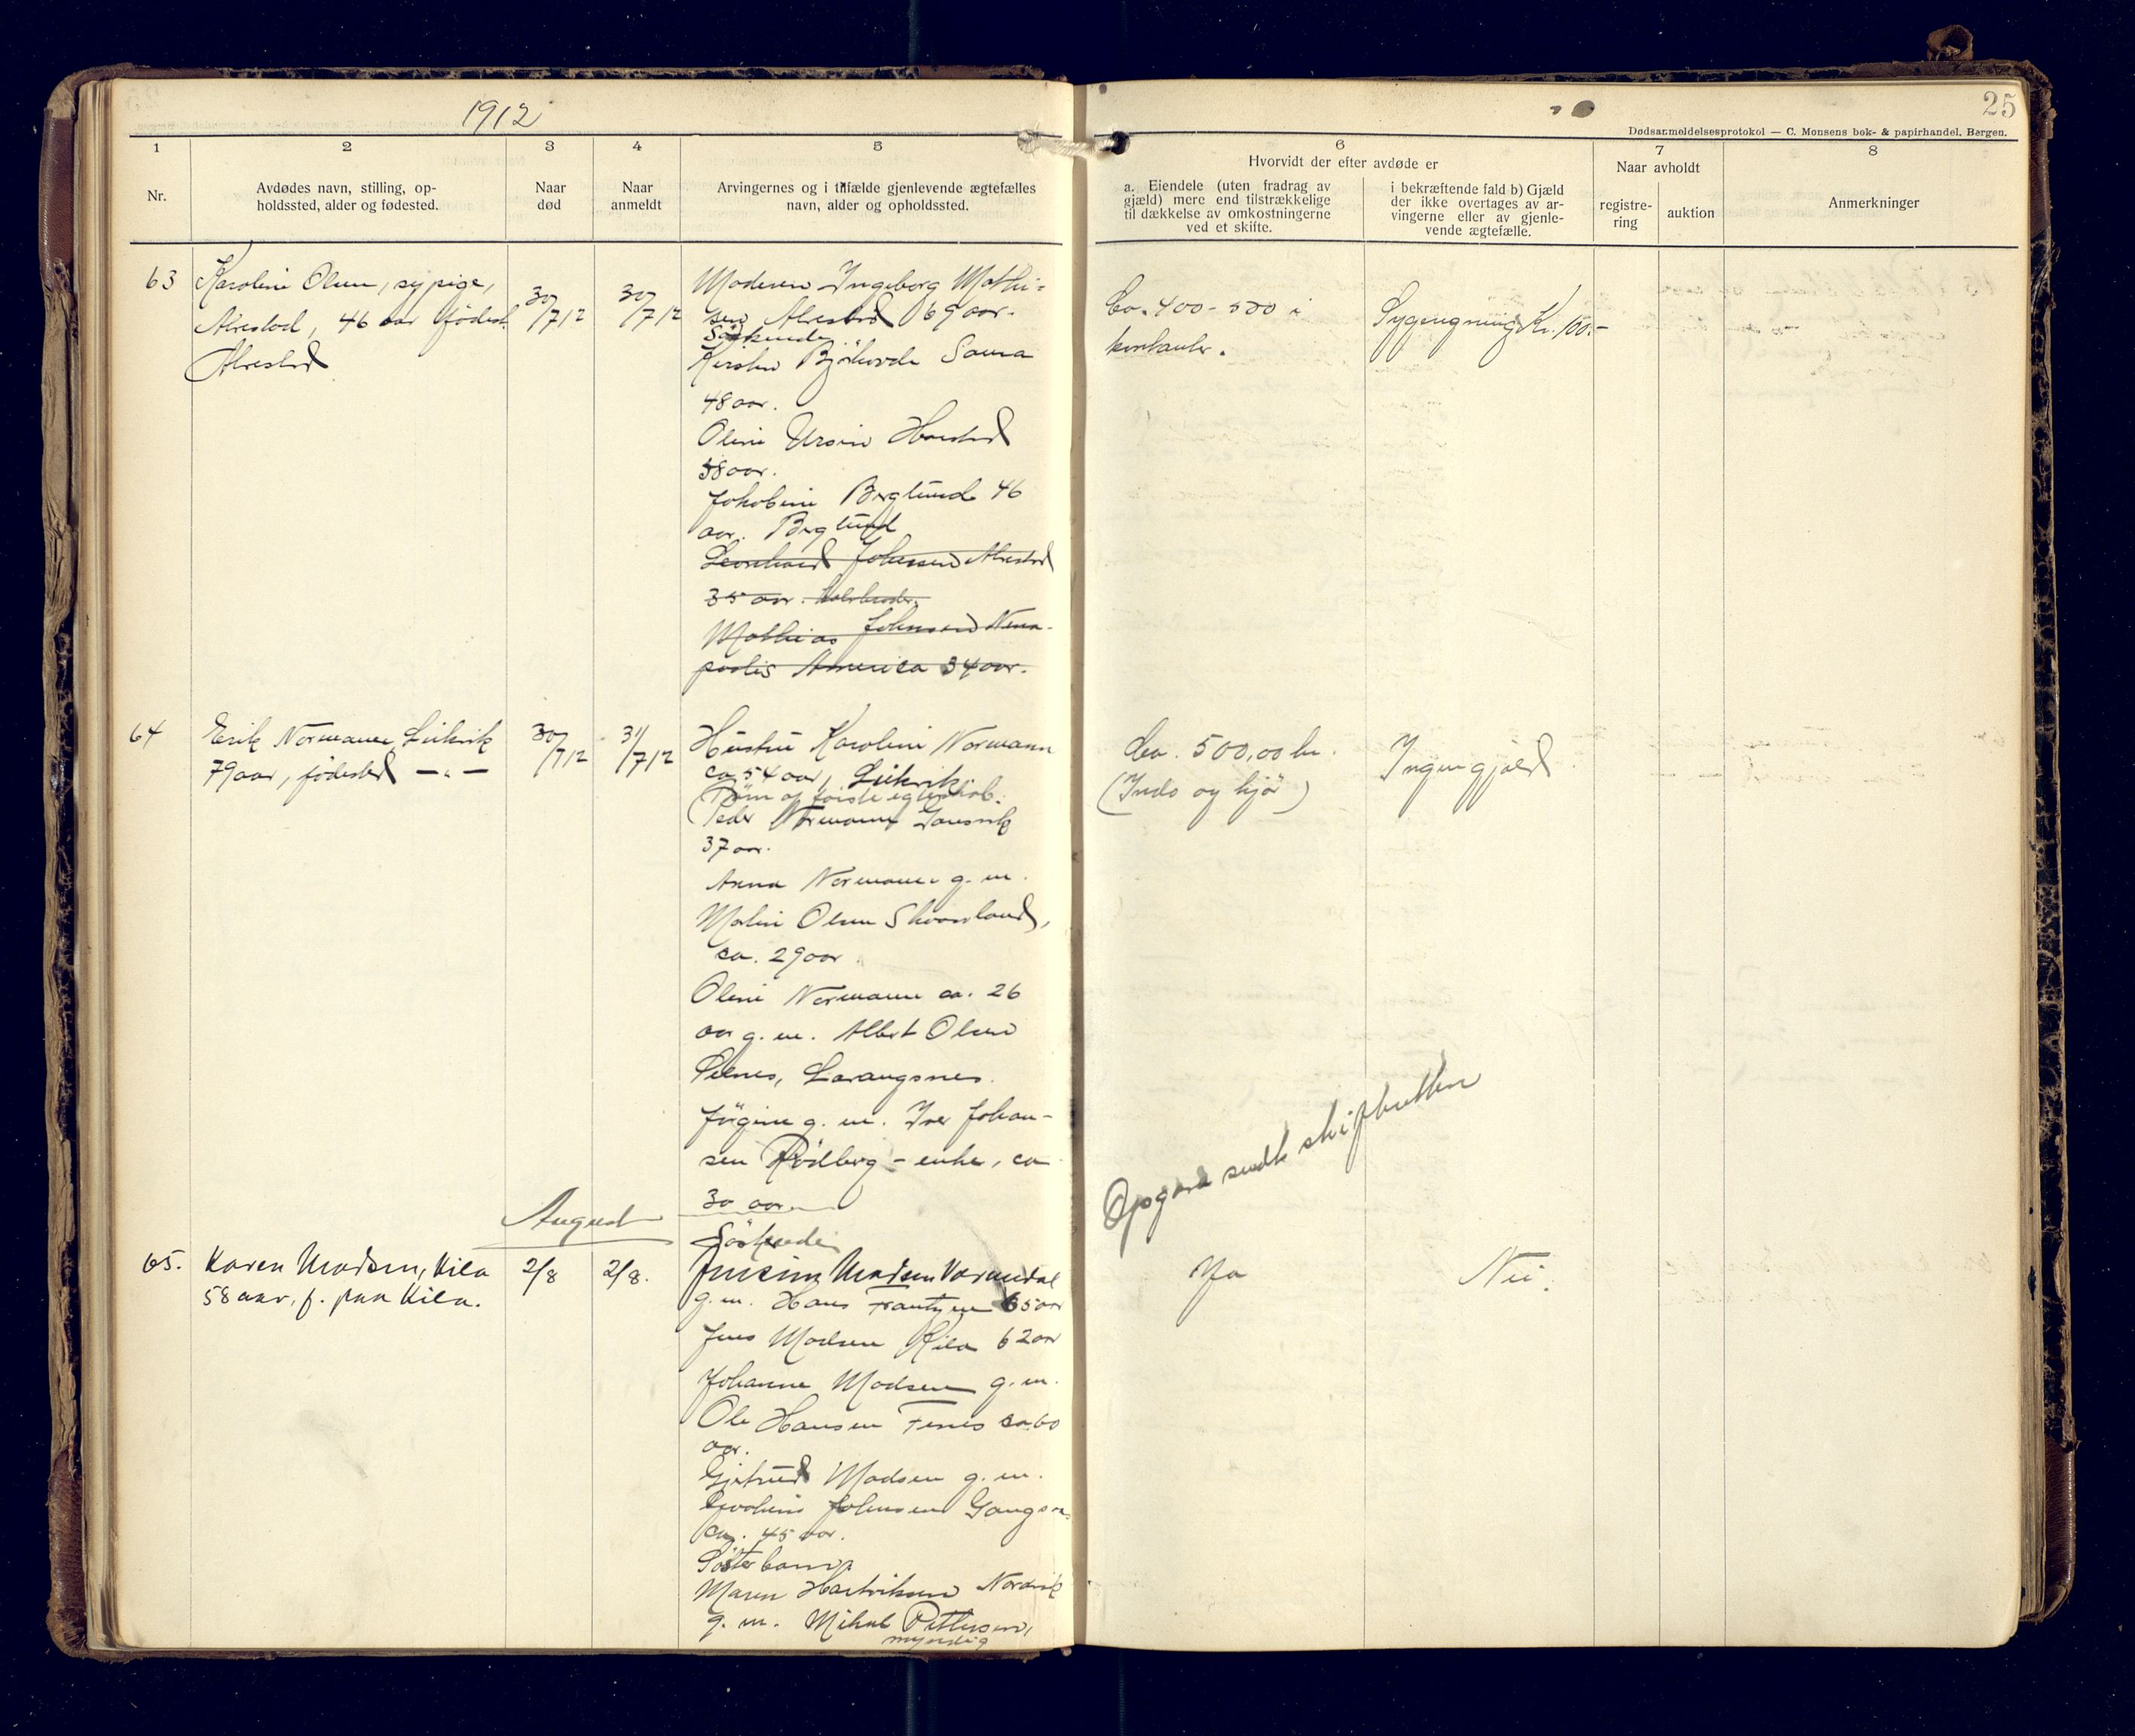 1912
25
Dødsanmeldelsesprotokol — C. Monsens bok- & papirhandel, Bergen.
1
2
3
4
5
6
7
8
Nr.
Avdødes navn, stilling, op-
holdssted, alder og fødested.
Naar
død
Naar
anmeldt
Arvingernes og i tilfælde gjenlevende ægtefælles
navn, alder og opholdssted.
Hvorvidt der efter avdøde er
a. Eiendele (uten fradrag av
gjæld) mere end tilstrækkelige
til dækkelse av omkostningerne
ved et skifte.
i bekræftende fald b) Gjæld
der ikke overtages av ar-
vingerne eller av gjenle-
vende ægtefælle.
Naar avholdt
registre-
ring
auktion
Anmerkninger
63
Karoline Olsen, sypige,
46 aar fødest.
30/7 12
30/7 12
Moderen Ingeborg Mathi-
sen 69 aar.
Söskende
48 aar.
Oline Ursin
58 aar.
Jakobine Berglund 46
aar. Berglund
Leonhard Johnsen
35 aar. halvbroder.
Mathias Johnsen Nena-
polis America 34 aar.
Ca. 400 - 500 i
kontanter.
Kr. 100.-
64
Erik Normann
79 aar, fødested —"—
30/7 12
31/7 12
Hustru Karoline Normann
ca. 54 aar,
Börn af første egteskab.
Peder Normann
37 aar.
Anna Normann g. m.
Olsen
ca. 29 aar.
Oline Normann ca. 26
aar g. m. Albert Olsen
g. m. Iver Johan-
sen Rödberg - enke, ca
30 aar.
Ca. 500,00 kr.
(Indo og kjør)
Ingen gjæld.
Opgave sendt skifteretten
August
65.
Karen Madsen, Kila
58 aar, f. paa Kila.
2/8
2/8.
Söskende
Madsen
g. m. Hans Frantzen 65 aar
Jens Madsen Kila 62 aar
Johanne Madsen g. m.
Ole Hansen Fenes ca 60
aar.
Gjertrud Madsen g. m.
Johnsen
ca. 45 aar.
Söster barn
Maren Hartviksen Nordvik
g. m. Mikal Pettersen,
myndig
Ja
Nei.